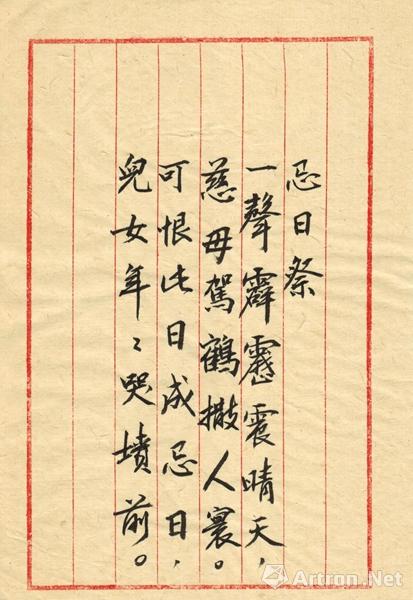 忌日祭
一聲霹靂震晴天，
慈母駕鶴撒人寰。
可恨此日成忌日，
兒女年〻哭墳前。
Artron.Net